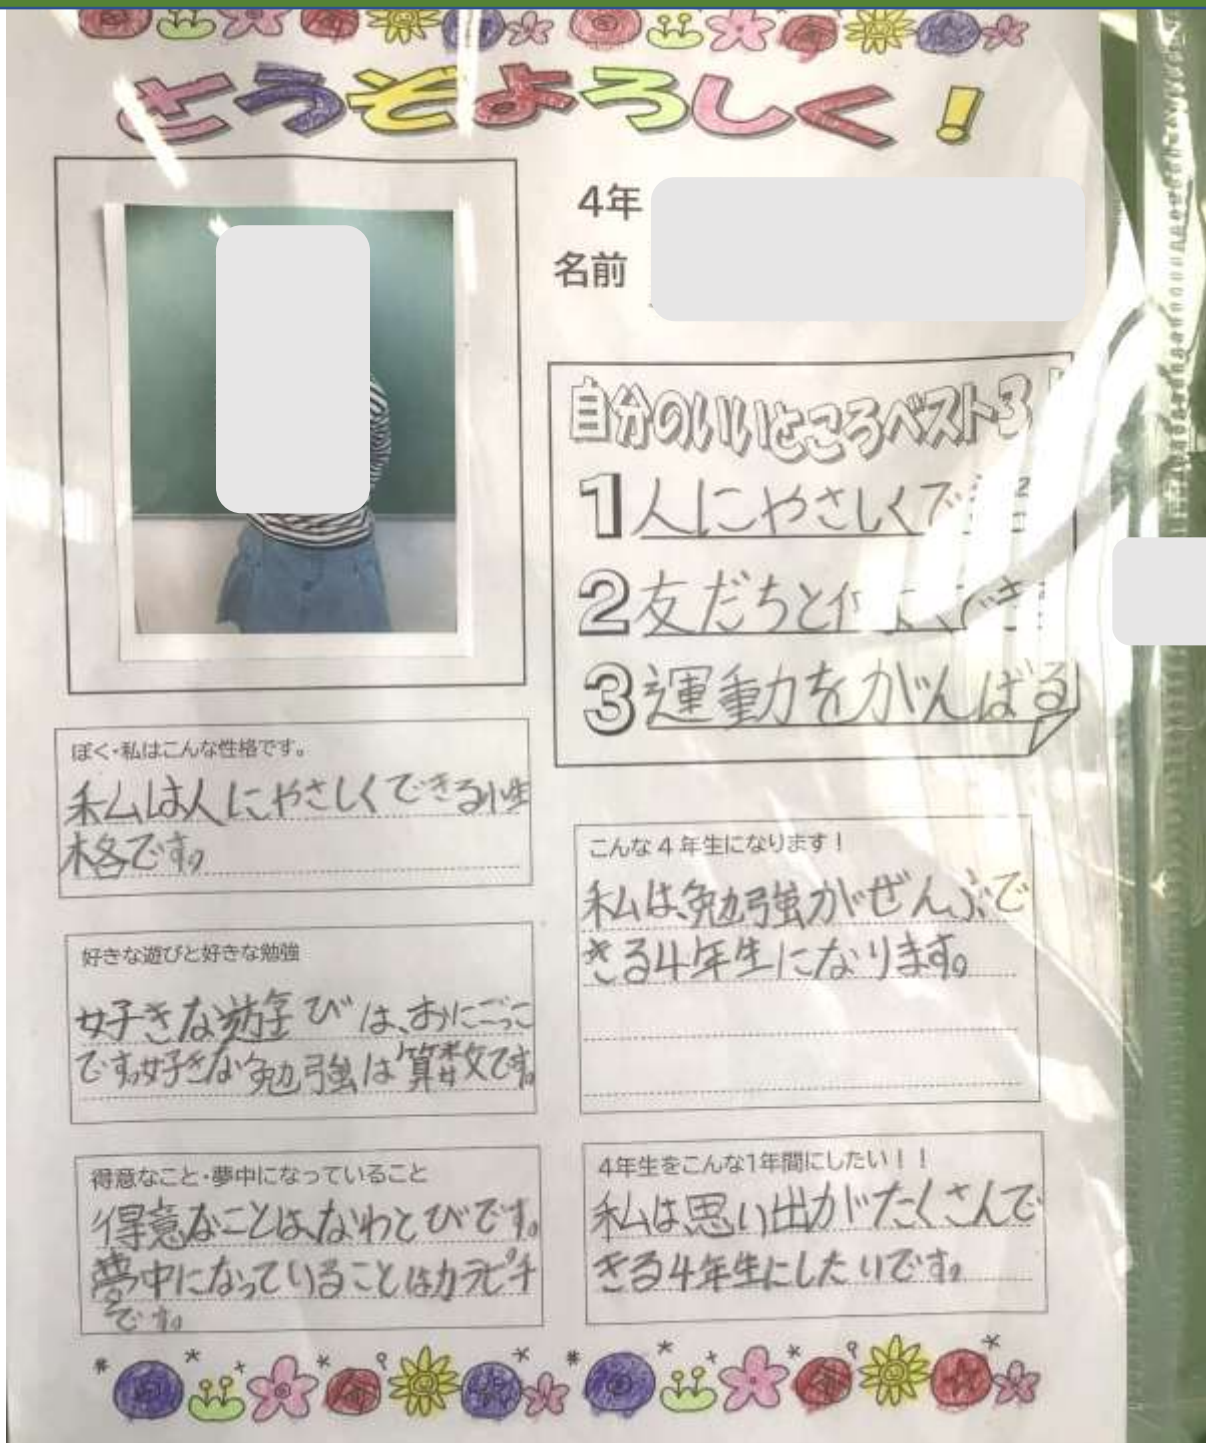 どうぞよろしく!
4年
名前
自分のいいところベスト3
1 人にやさしくで
2 友だちと
3 運動をがんばる
ぼく・私はこんな性格です。
私は人にやさしくできる性
格です。
好きな遊びと好きな勉強
好きな遊びは、おにごっこ
です。好きな勉強は算数です。
得意なこと・夢中になっていること
得意なことは、なわとびです。
夢中になっていることはカラピチ
です。
こんな4年生になります!
私は、勉強がぜんぶで
きる4年生になります。
4年生をこんな1年間にしたい!!
私は、思い出がたくさんで
きる4年生にしたいです。